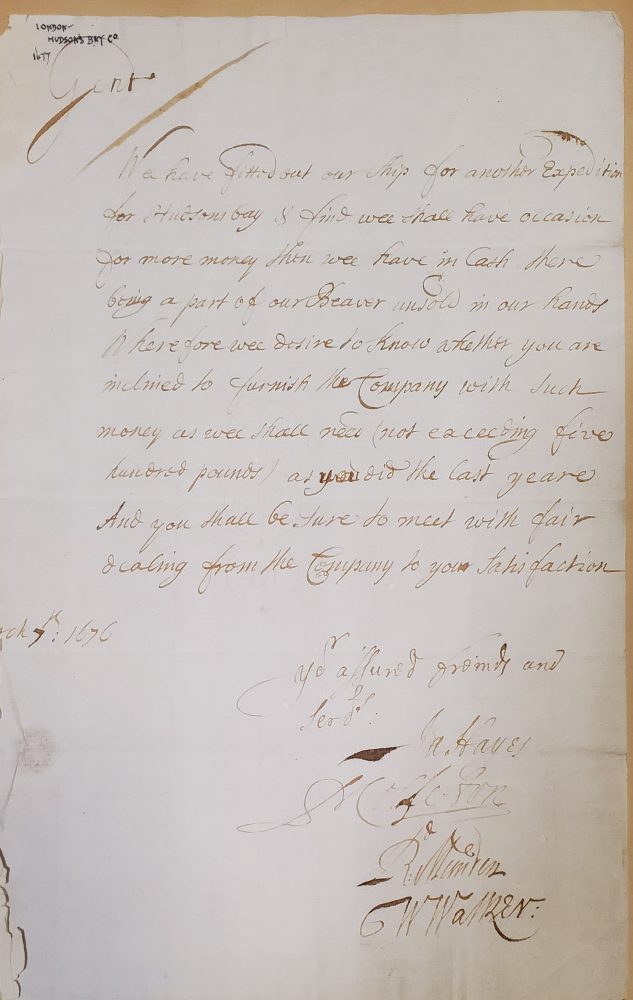 LONDON
HUDSON'S BAY Co
1677
Gentn
Wee have fitted out our Ship for another Expedition
for Hudsons bay & find wee shall have occasion
for more money then wee have in Cash there
being a part of our Beaver unsold in our hands
Wherefore wee desire to know whether you are
inclined to furnish the Company with such
money as wee shall need (not exceeding five
hundred pounds) as you did the last yeare
And you shall be sure to meet with fair
dealing from the Company to your Satisfaction
rch 7th: 1676
yor assured freinds and
Servts:
Ja Hayes
Rd
W Walker: